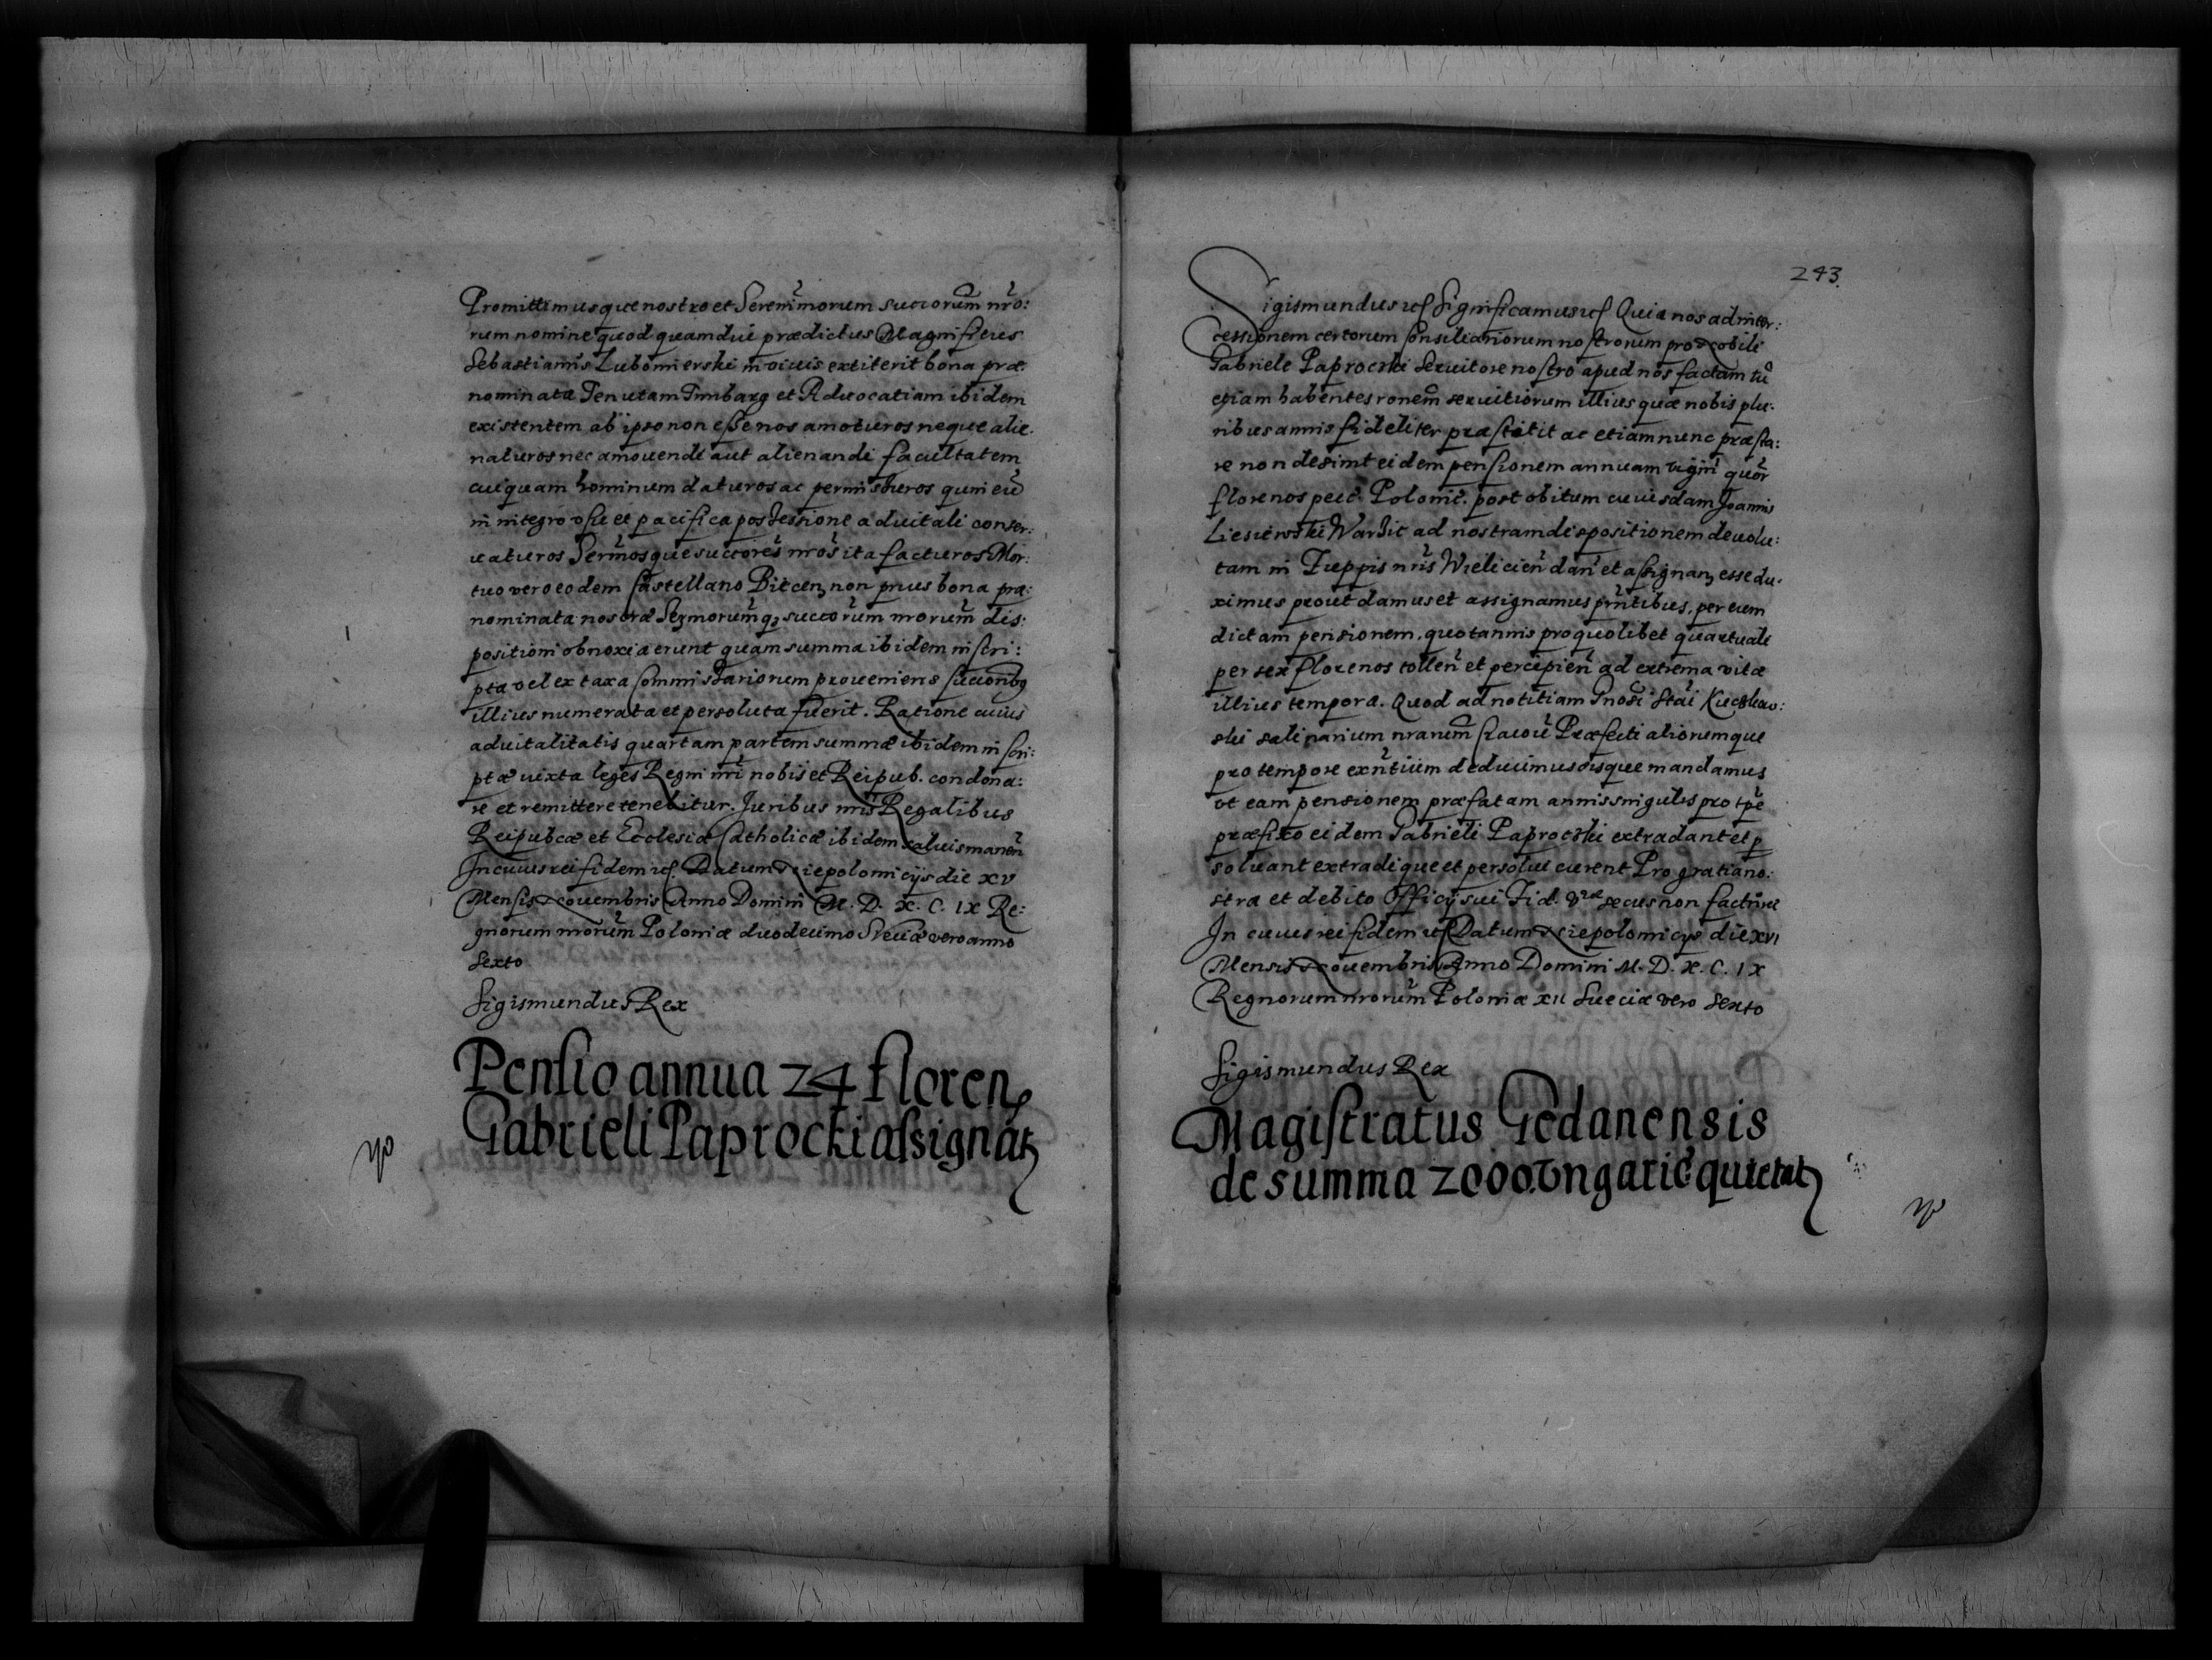 Promittimusque nostro et Serenimorum succorum nro:
rum nomine quod quamdiu prædictus Magnificus
Sebastianus Lubomierski in viuis extiterit bona præ:
nominata Tenutam Timbarg et Aduocatiam ibidem
existentem ab ipso non esse nos amoturos neque alie:
naturos nec amouendi aut alienandi facultatem
cuiquam hominum daturos ac permissuros quin eu
in integro vsu et pacifica possessione aduitali conser:
uaturos Sermosque succores nros ita facturos Mor:
tuo vero eodem Castellano Bitcen non prius bona præ:
nominata nostræ Sermorumq succorum nrorum dis:
positioni obnoxia erunt quam summa ibidem inscri:
pta vel ex taxa Commissariorum proueniens succoribq
illius numerata et persoluta fuerit. Ratione cuius
aduitalitatis quartam partem summæ ibidem inscri:
ptæ iuxta leges Regni nri nobis et Reipub. condona:
re et remittere tenebitur. Juribus nris Regalibus
Reipubcæ et Ecclesiæ Catholicæ ibidem saluis manen
In cuius rei fidem etc. Datum Niepolomicijs die XV
Mensis Nouembris Anno Domini M. D. X. C. IX Re:
gnorum nrorum Poloniæ duodecimo Sveciæ vero anno
sexto
Sigismundus Rex
Pensio annua 24 floren
Gabrieli Paprocki assignat
243.
Sigismundus etc Significamus etc Quia nos ad inter:
cessionem certorum Consiliariorum nostrorum pro Nobili
Gabriele Paprocski Seruitore nostro apud nos factam tu
etiam habentes ronem seruitiorum illius quæ nobis plu:
ribus annis fideliter præstitit ac etiam nunc præsta:
re non desinit eidem pensionem annuam viginti quor
florenos pecc. Polonic. post obitum cuiusdam Joannis
Liesiewski Warsic ad nostram dispositionem deuolu:
tam in Zuppis nris Wielicien dan et assignan esse du:
ximus prout damus et assignamus prntibus, per eum
dictam pensionem, quotannis pro quolibet quartuali
per sex florenos tollen et percipien ad extrema vitæ
illius tempora. Quod ad notitiam Gnosi Stai Kucslaw:
ski salinarium nrarum Cracouie Præfecti aliorumque
pro tempore exntium deducimus eisque mandamus
vt eam pensionem præfatam annis singulis pro tpe
præfixo eidem Gabrieli Paprocski extradant et p
soluant extradique et persolui curent Pro gratia no:
stra et debito Officij sui Fid. Vræ secus non facturæ
In cuius rei fidem etc Datum Niepolomicijs die XVI
Mensis Nouembris Anno Domini M. D. X. C. IX
Regnorum nrorum Poloniæ XII Sueciæ vero Sexto
Sigismundus Rex
Magistratus Gedanensis
de summa 2000. Vngaric quietat